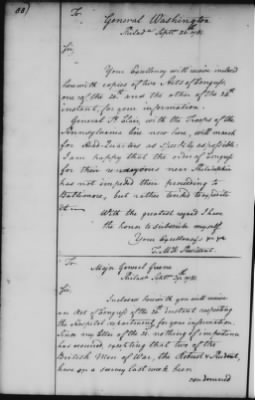 88)
To,
General Washington
Philada Septr 26th 1781
Sir,
Your Excellency will receive inclosed
herewith copies of two Acts of Congress,
one of the 20th and the other of the 24th
instant, for your information.
General St Clair, with the Troops of the
Pennsylvania line now here, will march
for Head-Quarters as speedily as possible.
I am happy that the order of Congress
for their rendezvous near Philadelphia
has not impeded their proceeding to
Baltimore, but rather tended to expedite
it—
With the greatest regard I have
the honor to subscribe myself
Your Excellency's &c &c
T. M:K. President.
To,
Major General Greene
Philada Septr 1781
Sir,
Inclosed herewith you will receive
an Act of Congress of the instant respecting
the Hospital department for your information.
Since my Letter of the nothing of importance
has occurred, excepting that two of the
British Men of War, the &
have on a survey last week been
condemned